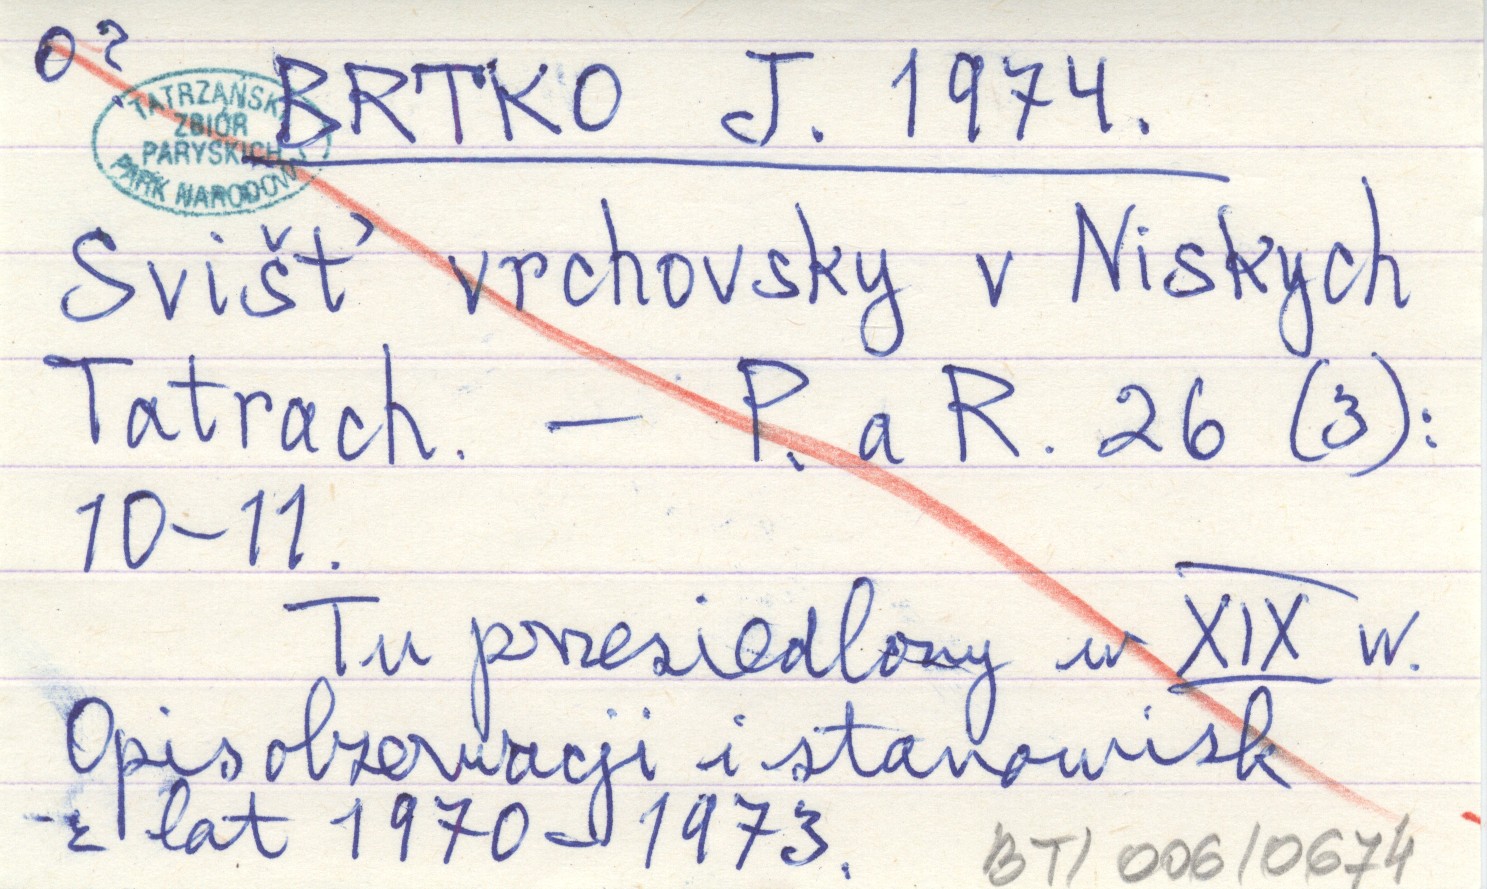 O?
TATRZAŃSKI
ZBIÓR
PARYSKICH
PARK NARODOWY
BRTKO J. 1974.
Svišť vrchovsky v Niskych
Tatrach. — P. a R. 26 (3):
10-11.
Tu przesiedlony w XIX w.
Opis obzerwacji i stanowisk
z lat 1970 - 1973.
BT/ 006/0674